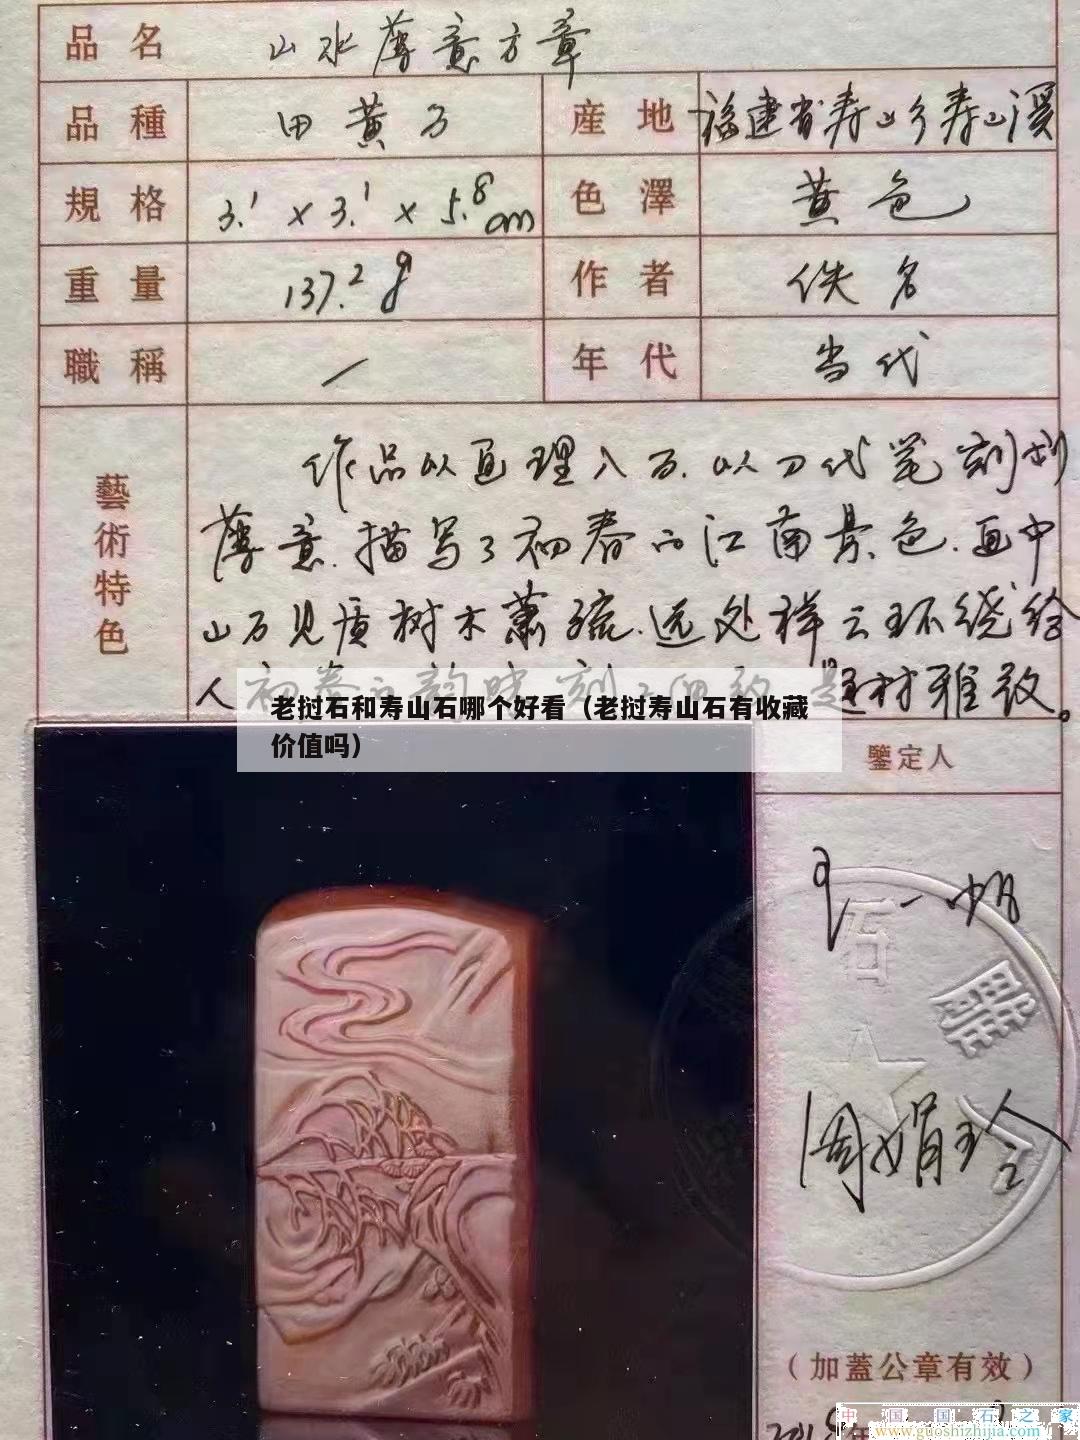 品名 山水薄意方章
品種 田黄石 産地 福建省寿山乡寿山溪
規格 3.1 x 3.1 x 5.8cm 色澤 黄色
重量 137.2g 作者 佚名
職稱 — 年代 当代
藝術特色
作品以画理入石.以刀代笔刻划
薄意.描写了初春的江南景色.画中
山石见质树木萧疏.远处祥云环绕给
人初春之韵味 刻工细致 题材雅致。
老挝石和寿山石哪个好看（老挝寿山石有收藏
价值吗）
鑒定人
周娟玲
石
雕
（加蓋公章有效）
中国国石之家
www.guoshizhijia.com